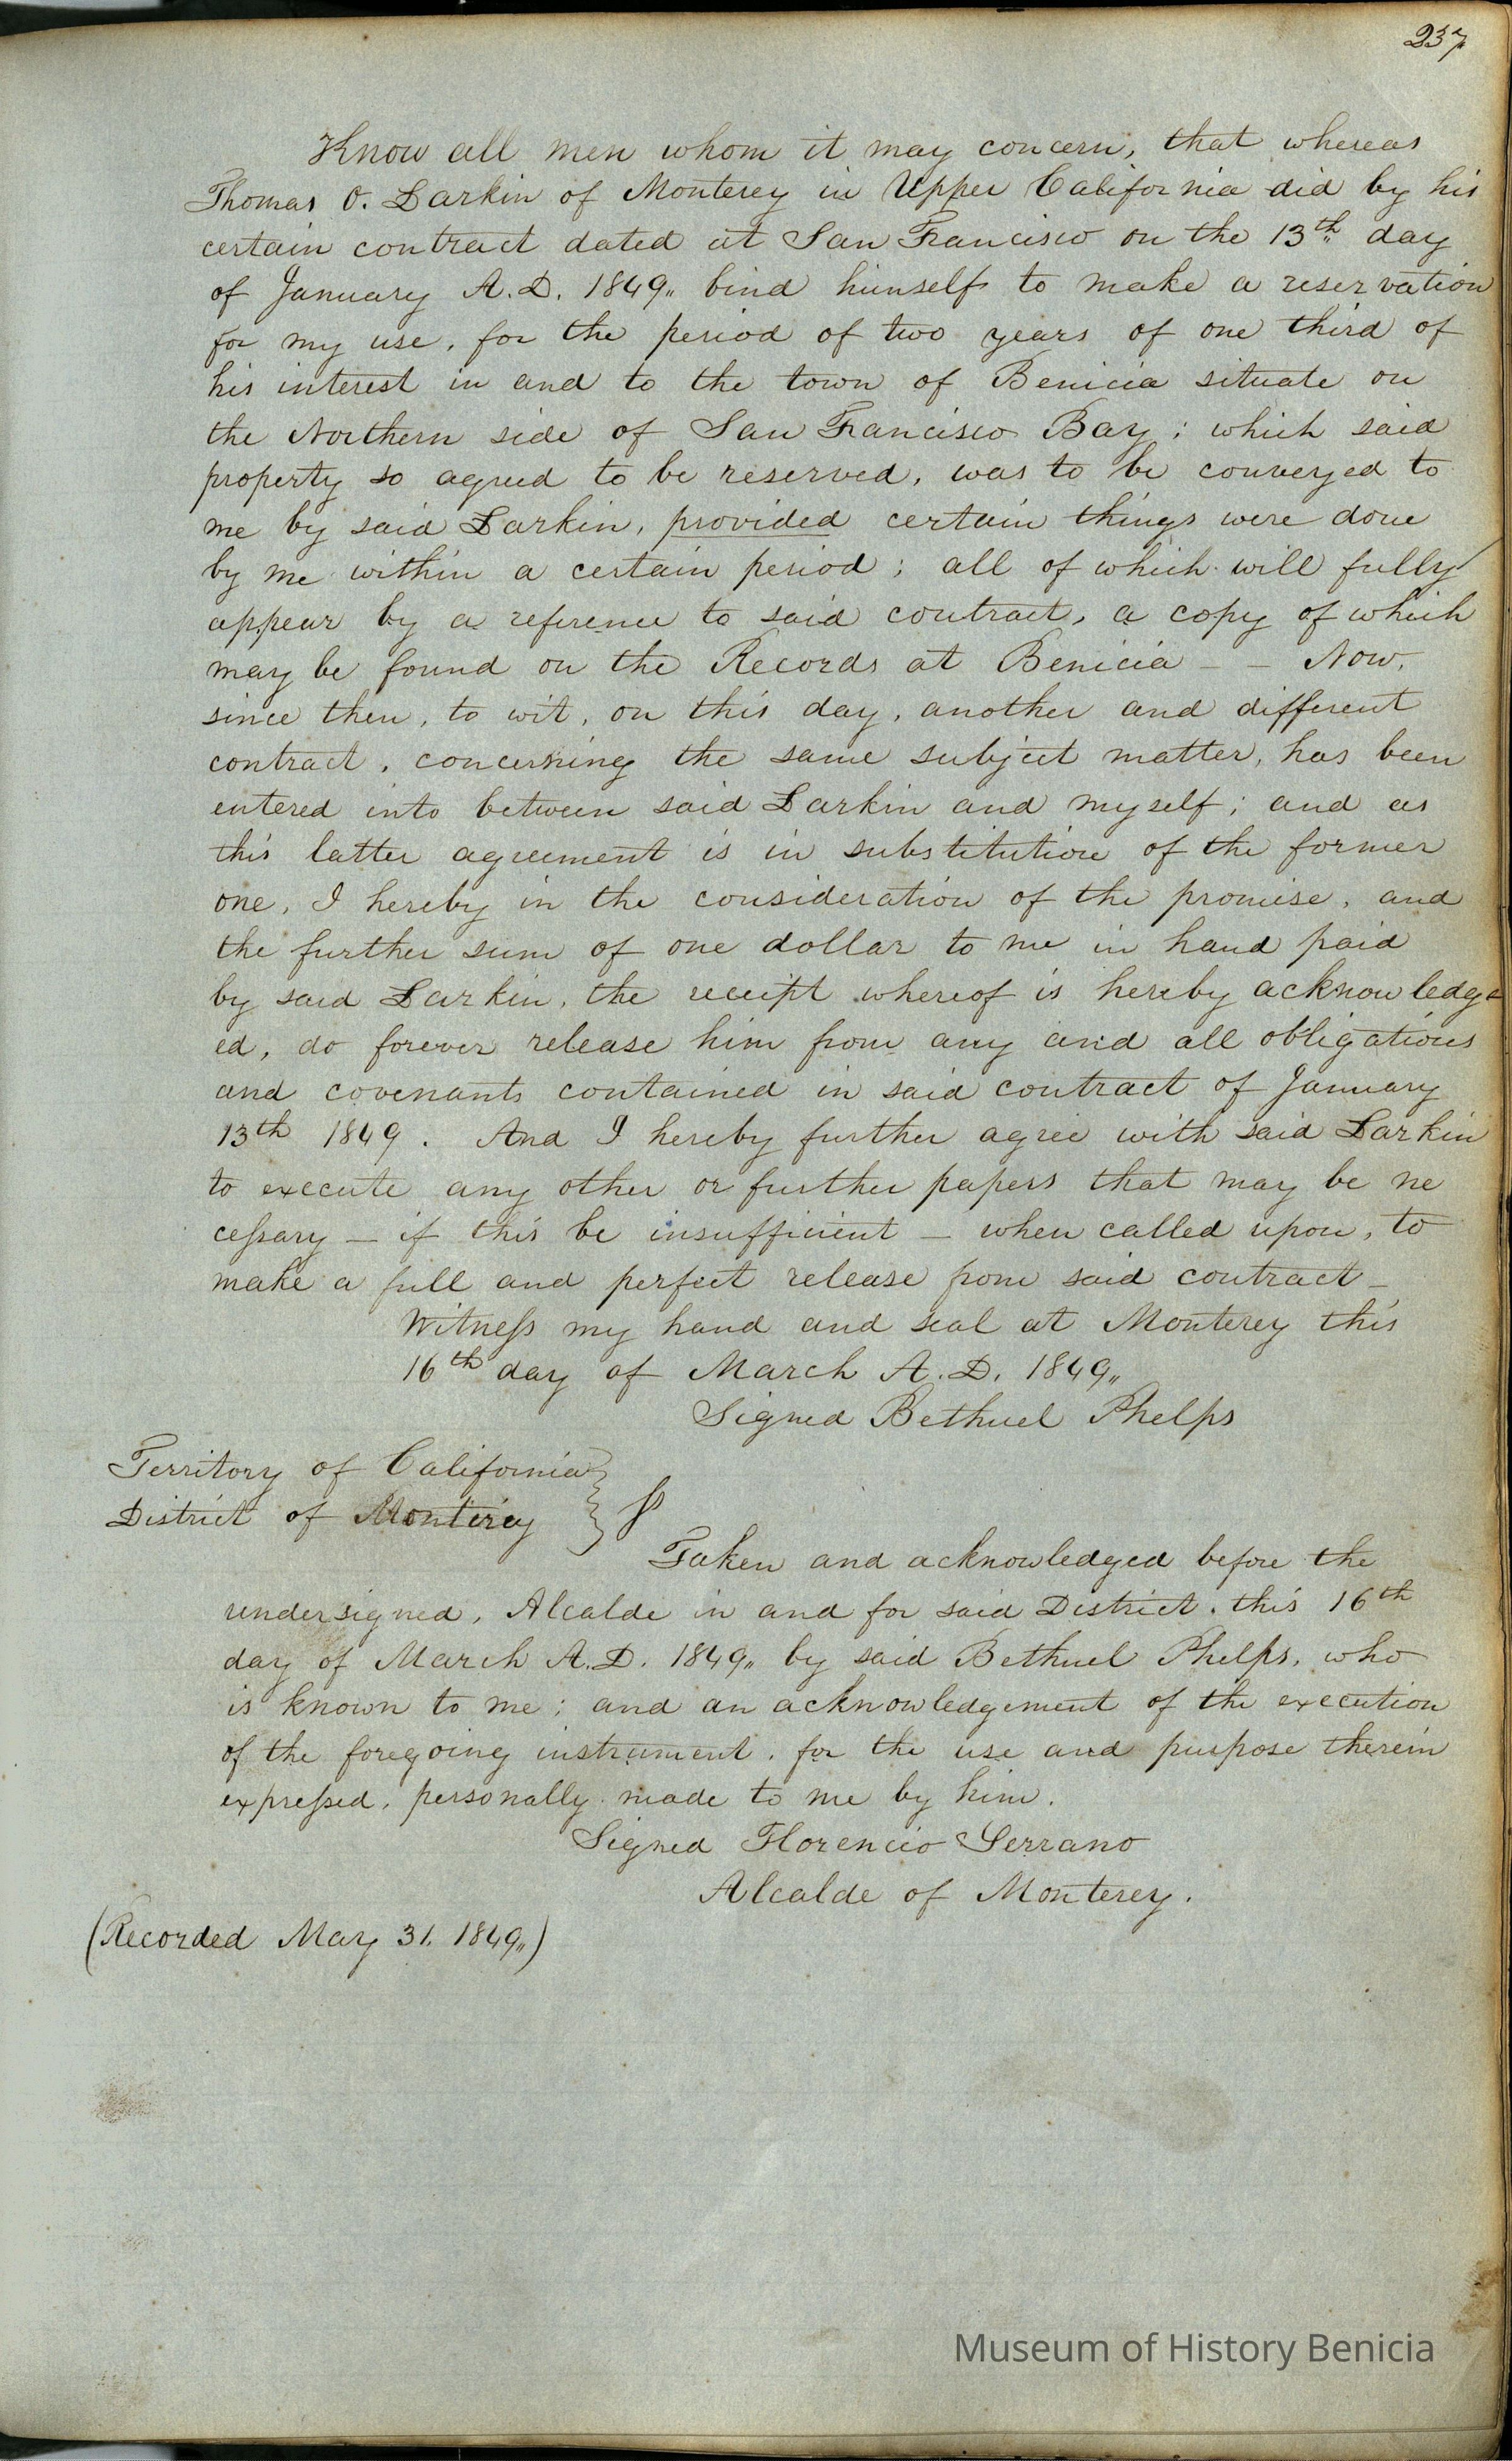 237
Know all men whom it may concern, that whereas
Thomas O. Larkin of Monterey in Upper California did by his
certain contract dated at San Francisco on the 13th day
of January A.D. 1849„ bind himself to make a reservation
for my use, for the period of two years of one third of
his interest in and to the town of Benicia situate on
the Northern side of San Francisco Bay; which said
property so agreed to be reserved, was to be conveyed to
me by said Larkin, provided certain things were done
by me within a certain period; all of which will fully
appear by a reference to said contract, a copy of which
may be found on the Records at Benicia — — Now,
since then, to wit, on this day, another and different
contract, concerning the same subject matter, has been
entered into between said Larkin and myself; and as
this latter agreement is in substitution of the former
one, I hereby in the consideration of the promise, and
the further sum of one dollar to me in hand paid
by said Larkin, the receipt whereof is hereby acknowledg-
ed, do forever release him from any and all obligations
and covenants contained in said contract of January
13th 1849. And I hereby further agree with said Larkin
to execute any other or further papers that may be ne
cessary — if this be insufficient — when called upon, to
make a full and perfect release from said contract —
Witness my hand and seal at Monterey this
16th day of March A.D. 1849„
Signed Bethuel Phelps
Territory of California
District of Monterey } ss
Taken and acknowledged before the
undersigned, Alcalde in and for said District, this 16th
day of March A.D. 1849„ by said Bethuel Phelps, who
is known to me; and an acknowledgement of the execution
of the foregoing instrument, for the use and purpose therein
expressed, personally made to me by him.
Signed Florencio Serrano
Alcalde of Monterey.
(Recorded May 31. 1849„)
Museum of History Benicia